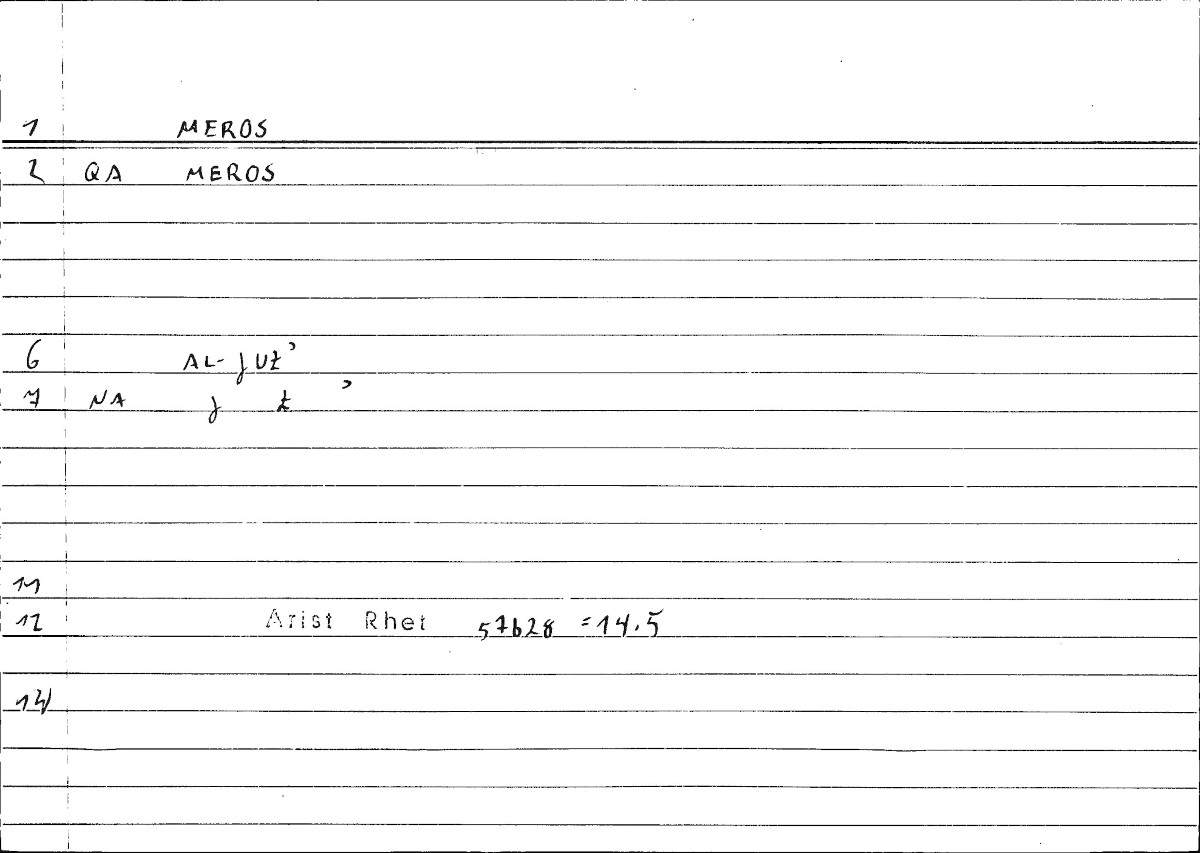 1 MEROS
2 QA MEROS
6 AL-ȷUƵʾ
7 NA ȷ ƶ ʾ
11
12 Arist Rhet 57b28 = 14.5